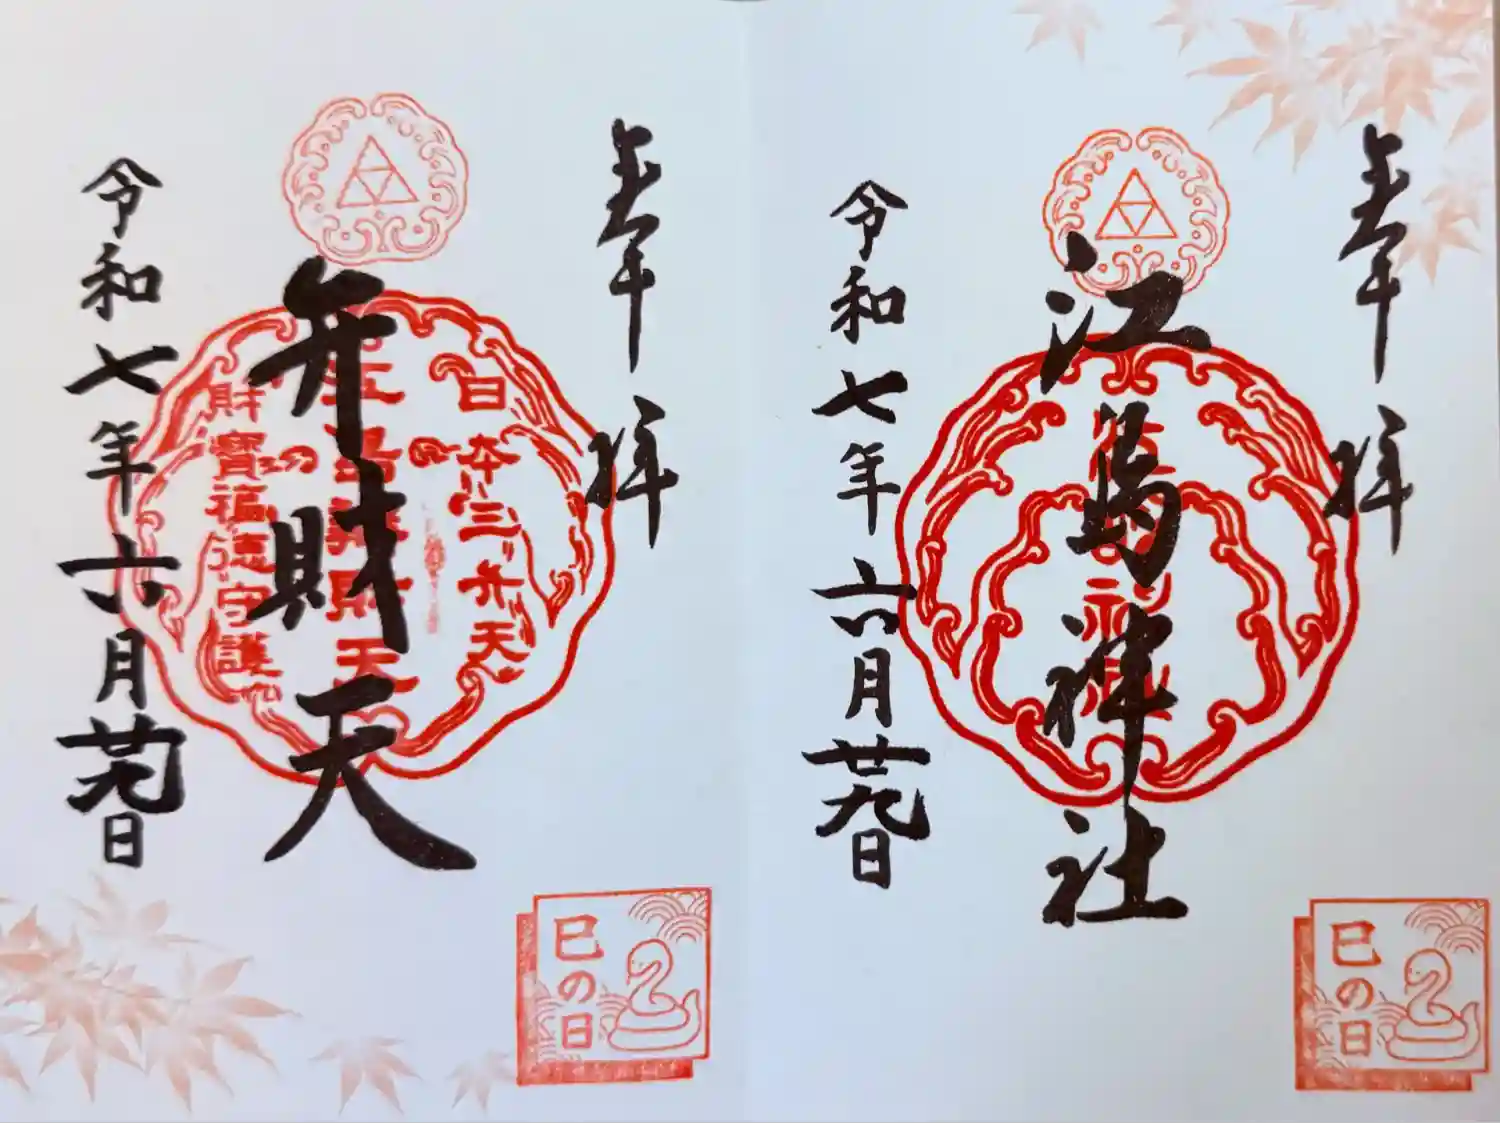 奉拝
江島神社
令和七年六月廿九日
巳の日
奉拝
弁財天
日本三弁天
江島辨財天
財寶福徳守護
令和七年六月廿九日
巳の日